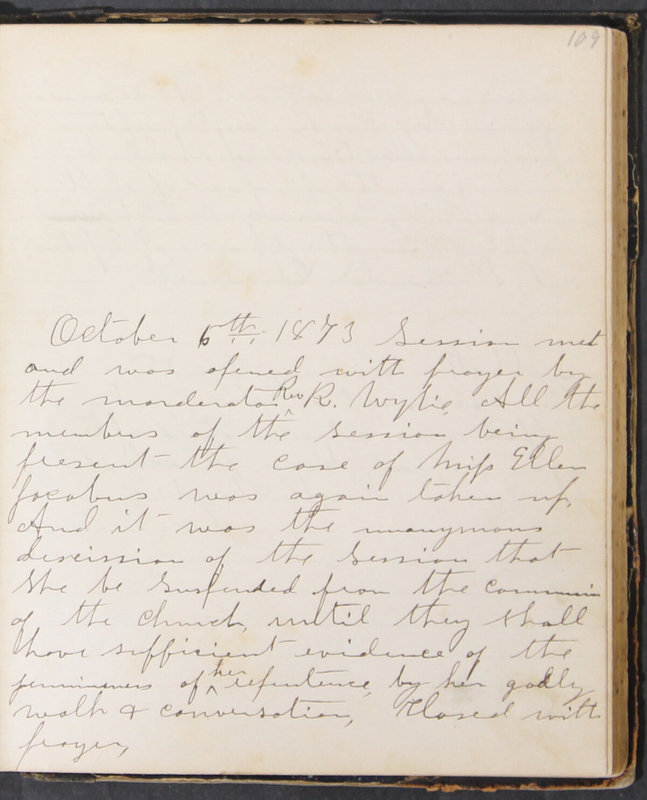 109
October 6th 1873 Session met
and was opened with prayer by
the morderator Rev R. Wylie, All the
members of the session being
present the case of Miss Ellen
Jacobus was again taken up,
And it was the unanymous
descission of the Session that
She be Suspended from the communion
of the Church, until they shall
have sufficient evidence of the
of her repentence, by her godly
walk & conversation, Closed with
prayer,